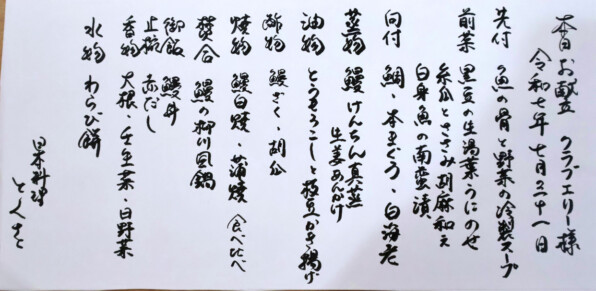 本日お献立 クラブエリー様
令和七年 七月
先付 魚の骨と野菜の冷製スープ
前菜 黒豆の生湯葉うにのせ
糸瓜とささみ胡麻和え
白身魚の南蛮漬
向付 鯛・本まぐろ・白海老
蒸物 鰻けんちん真蒸
生姜あんかけ
油物 とうもろこしと枝豆かき揚げ
酢物 鰻ざく・胡瓜
焼物 鰻白焼・蒲焼 食べ比べ
焚合 鰻の柳川風鍋
御飯 鰻丼
止椀 赤だし
香物 大根・壬生菜・日野菜
水物 わらび餅
日本料理